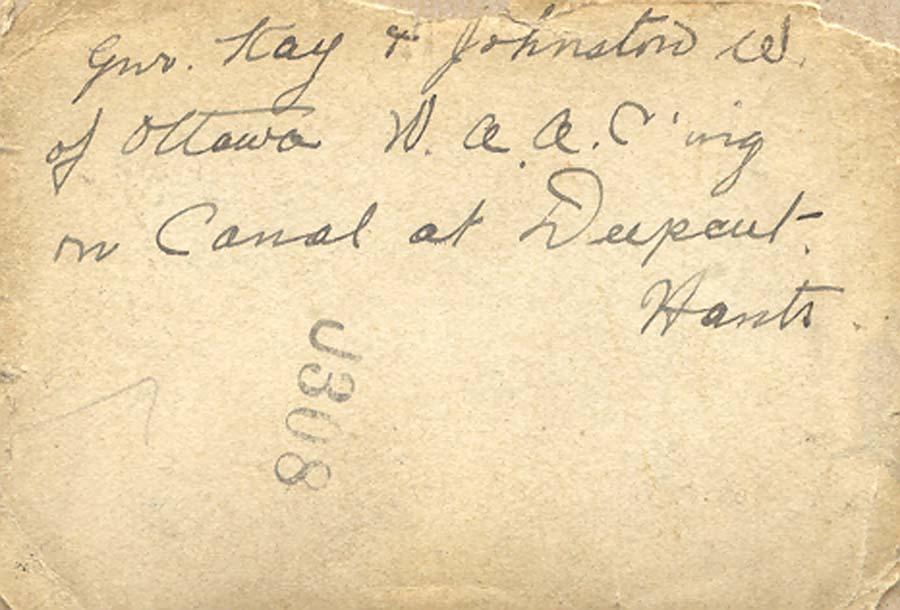 Gnr. Kay & Johnston W.
of Ottawa W. A. A. C'ing
on Canal at Deepcut.
Hants
J308